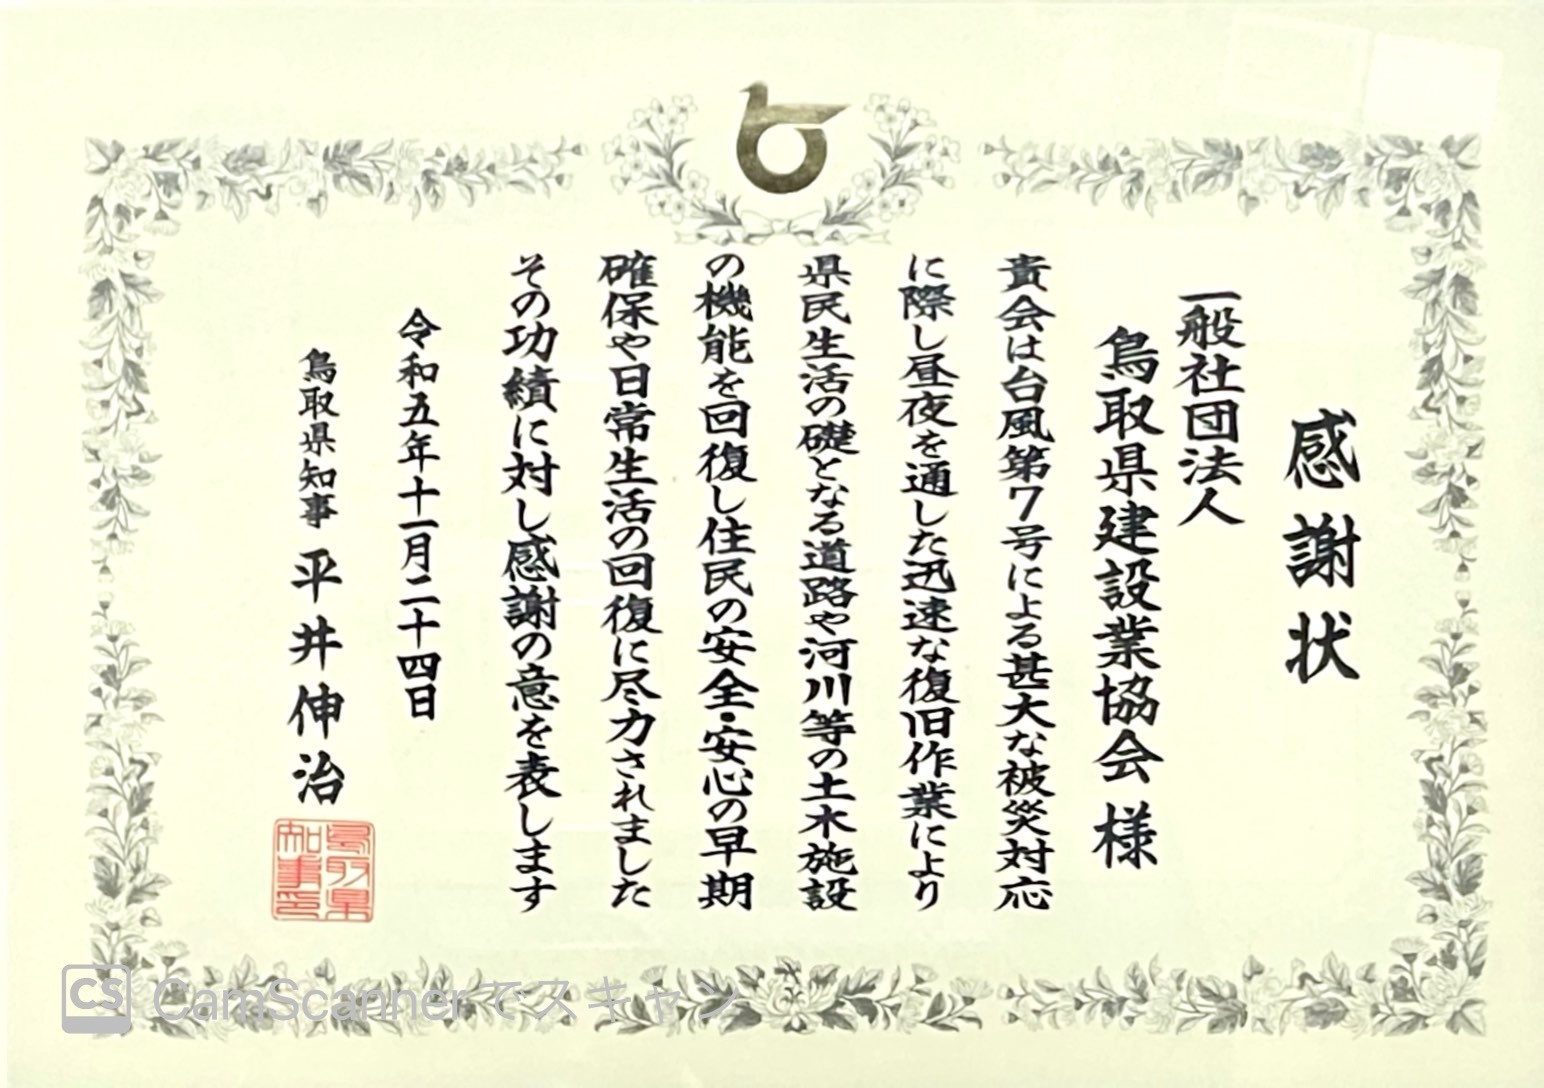 感謝状
一般社団法人
鳥取県建設業協会 様
貴会は台風第7号による甚大な被災対応
に際し昼夜を通した迅速な復旧作業により
県民生活の礎となる道路や河川等の土木施設
の機能を回復し住民の安全・安心の早期
確保や日常生活の回復に尽力されました
その功績に対し感謝の意を表します
令和五年十一月二十四日
鳥取県知事 平井伸治
鳥取県
知事印
CS CamScannerでスキャン